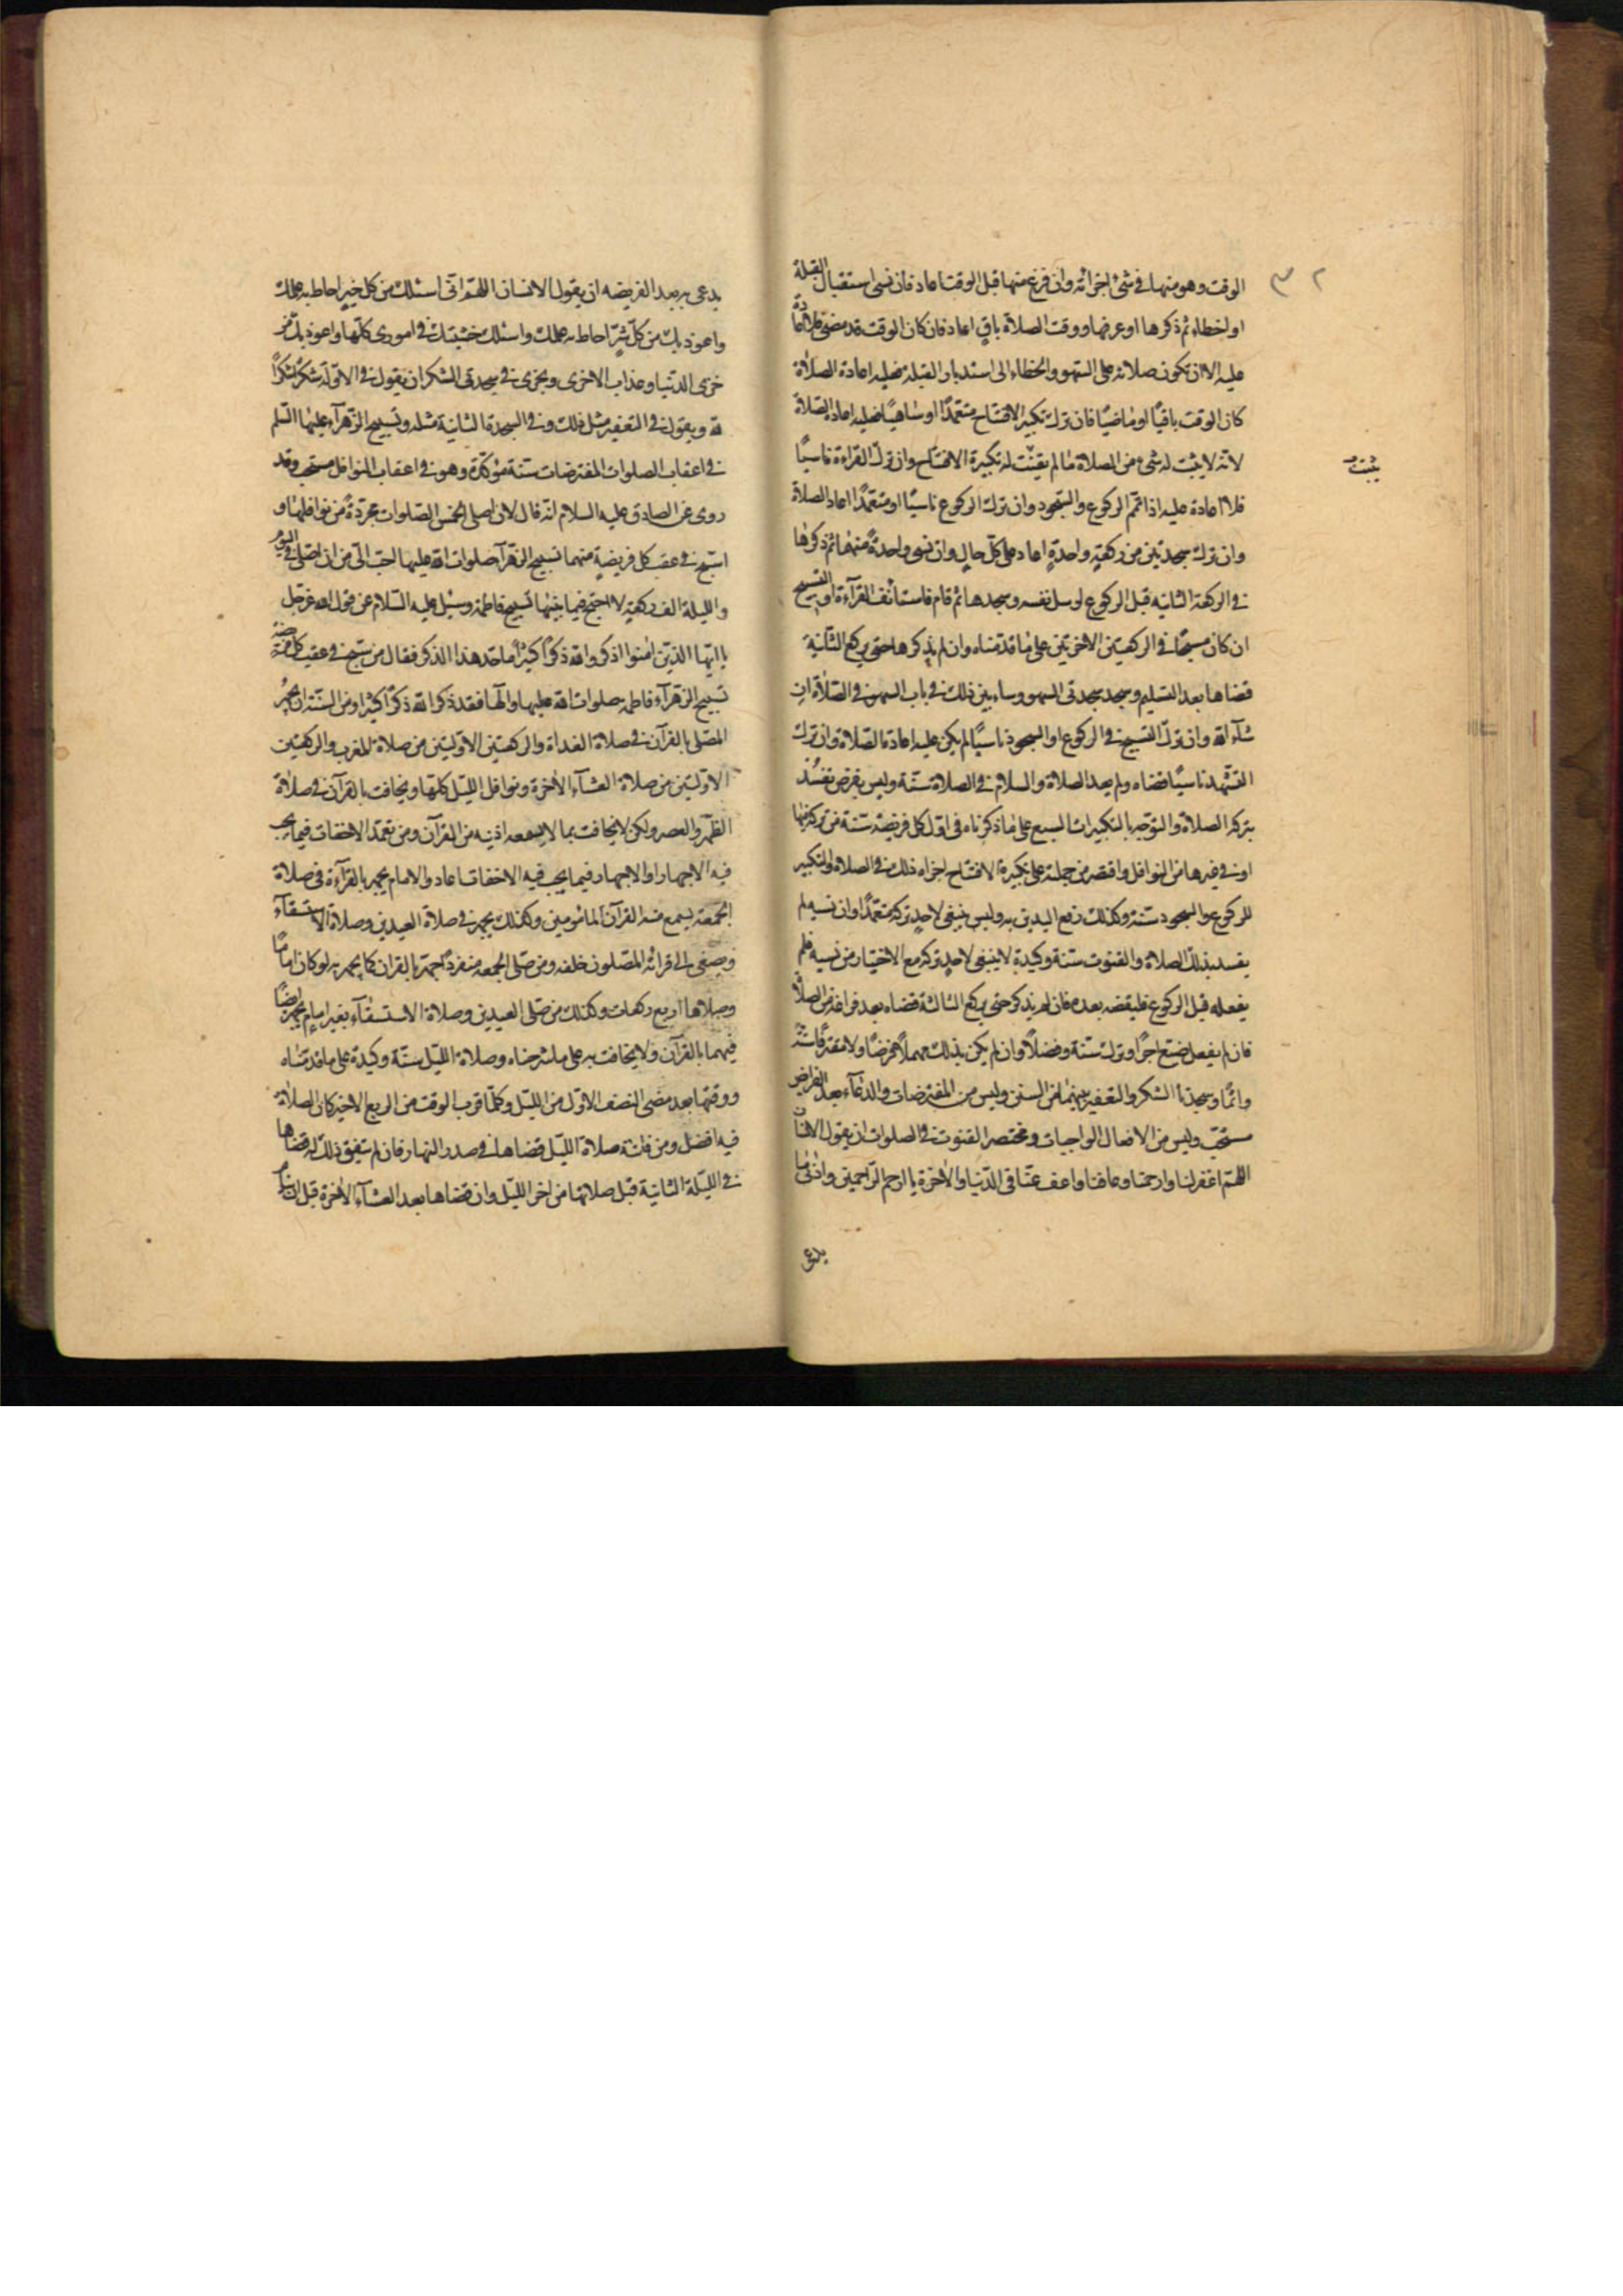 ٣٢
الوقت وهو منها فى شئ اجزائه وان فرغ منها قبل الوقت اعاد فان نسى استقبال القبلة
او اخطاء ثم ذكرها او عرفها ووقت الصلاة باق اعاد فان كان الوقت قد مضى فلا اعادة
عليه الا ان تكون صلاته على السهو والخطاء الى استدبار القبلة فعليه اعادة الصلاة
كان الوقت باقيًا او ماضيًا فان ترك تكبير الافتتاح متعمدًا او ساهيًا فعليه اعادة الصلاة
لانه لا يثبت له شئ من الصلاة ما لم يثبت له تكبيرة الافتتاح وان ترك القراءة ناسيًا
يثبت
فلا اعادة عليه اذا تمم الركوع والسجود وان ترك الركوع ناسيًا او متعمدًا اعاد الصلاة
وان ترك سجدتين من ركعةٍ واحدةٍ اعاد على كل حالٍ وان نسى واحدةً منهما ثم ذكرها
فى الركعة الثانيه قبل الركوع ارسل نفسه وسجدها ثم قام فاستانف القرآءة او التسبيح
ان كان مسبحًا فى الركعتين الاخرتين على ما قدمناه وان لم يذكرها حتى يركع الثانية
قضاها بعد التسليم وسجد سجدتى السهو وسابين ذلك فى باب السهو فى الصلاة ان
شآء الله وان ترك التسبيح فى الركوع او السجود ناسيًا لم يكن عليه اعادة الصلاة وان ترك
التشهد ناسيًا قضاه ولم يعد الصلاة والسلام فى الصلاة سنة وليس بفرض تفسد
بتركه الصلاة والتوجه بالتكبيرات السبع على ما ذكرناه فى اول كل فريضة سنة من تركها
او فى غيرها من النوافل واقتصر من جملة على تكبيرة الافتتاح اجزاه ذلك فى الصلاة والتكبير
للركوع والسجود سنة وكذلك رفع اليدين به وليس ينبغى لاحدٍ تركه متعمدًا وان نسيه لم
يفسد بذلك الصلاة والقنوت سنة وكيدة لا ينبغى لاحدٍ تركه مع الاختيار من نسيه فلم
يفعله قبل الركوع فليقضه بعده فان لم يذكر حتى يركع الثالثة قضاه بعد فراغه من الصلاة
فان لم يفعل ضيع اجرًا وترك سنة وفضلاً وان لم يكن بذلك مهملاً فرضًا ولا مقترفًا
واثمًا وسجدتا الشكر والتعفير بينهما من السنن وليس من المفترضات والدعآء بعد الفرائض
مستحب وليس من الافعال الواجبات ومختصر القنوت فى الصلوات ان يقول الانسان
اللهم اغفر لنا وارحمنا وعافنا واعف عنا فى الدنيا والاخرة يا ارحم الراحمين وادنى ما
يدعى
يدعى به بعد الفريضه ان يقول الانسان اللهم انى اسئلك من كل خيرٍ احاط به علمك
واعوذ بك من كل شرٍ احاط به علمك واسئلك خشيتك فى امورى كلها واعوذ بك من
خزى الدنيا وعذاب الاخرى ويجزى فى سجدتى الشكر ان يقول فى الاولة شكرًا شكرًا
لله ويقول فى التعفير مثل ذلك وفى السجدة الثانية مثله وتسبيح الزهرآء عليها السلم
فى اعقاب الصلوات المفترضات سنة مؤكدة وهو فى اعقاب النوافل مستحب وقد
روى عن الصادق عليه السلام انه قال لان اصلى الخمس الصلوات مجردةً من نوافلها و
اسبّح فى عقب كل فريضةٍ منها تسبيح الزهرآ صلوات الله عليها احب الى من ان اصلى فى اليوم
والليلة الف ركعةٍ لا اسبح فيما بينها تسبيح فاطمة وسئل عليه السلام عن قول الله عز وجل
يا ايها الذين امنوا اذكروا الله ذكرًا كثيرًا ما حد هذا الذكر فقال من سبح فى عقب كل فريضة
تسبيح الزهرآء فاطمه صلوات الله عليها والها فقد ذكر الله ذكرًا كثيرًا ومن السنة ان يجهر
المصلى بالقرآن فى صلاة الغداة والركعتين الاولتين من صلاة المغرب والركعتين
الاولتين من صلاة العشآء الاخرة ونوافل الليل كلها ويخافت بالقرآن فى صلاة
الظهر والعصر ولكن لا يخافت بما لا يسمعه اذنيه من القرآن ومن تعمد الاخفات فيما يجب
فيه الاجهار او الاجهار فيما يجب فيه الاخفات اعاد والامام يجهر بالقرآءة فى صلاة
الجمعة ليسمع منه القرآن المأمومين وكذلك يجهر فى صلاة العيدين وصلاة الاستسقآء
ويصغى الى قرائه المصلون خلفه ومن صلى الجمعه منفردًا جهر بالقران كما يجهر به لو كان امامًا
وصلاها اربع ركعات وكذلك من صلى العيدين وصلاة الاستسقآء بغير امامٍ يجهر ايضًا
فيهما بالقرآن ولا يخافت به على ما شرحناه وصلاة الليل سنة وكيدة على ما قدمناه
ووقتها بعد مضى النصف الاول من الليل وكلما قرب الوقت من الربع الاخير كان الصلاة
فيه افضل ومن فاتته صلاة الليل قضاها فى صدر النهار فان لم يتفق ذلك له قضاها
فى الليلة الثانية قبل صلاتها من اخر الليل وان قضاها بعد العشآء الاخرة قبل ان